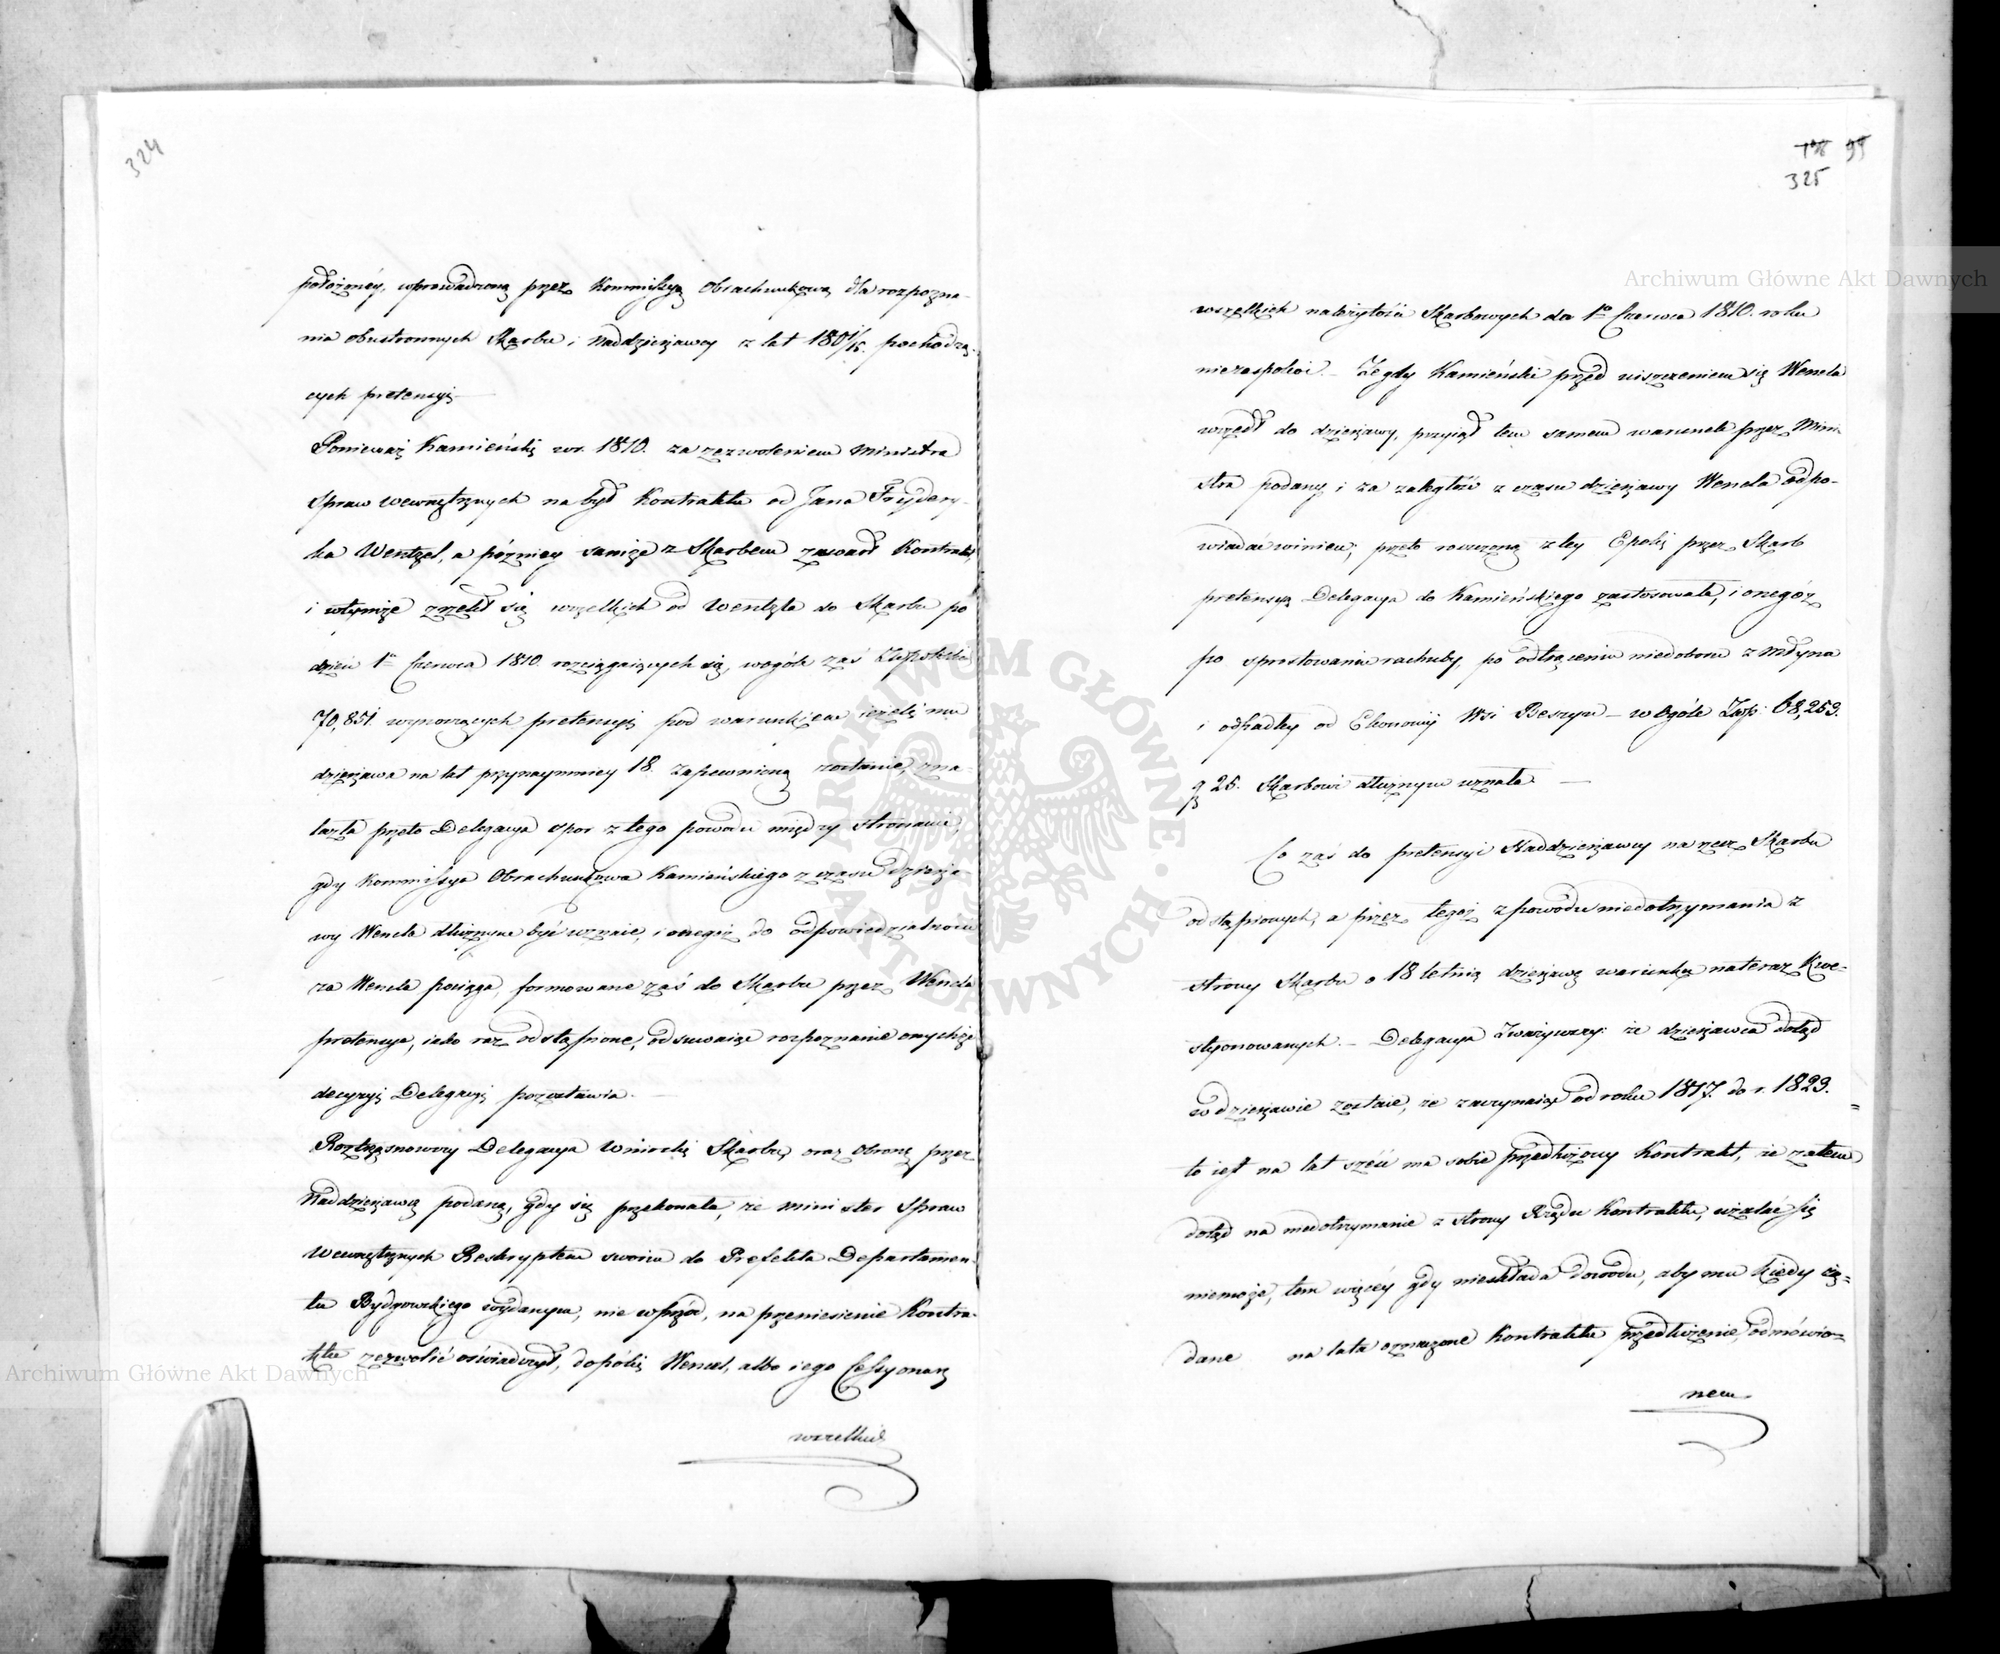 324
położonéy, wprowadzoną przez Kommissyą Obrachunkową dla rozpozna-
nia obustronnych Skarbu i Naddzierżawcy z lat 180¹/₁₅. pochodzą-
cych pretensyi —
Ponieważ Kamieński w r. 1810. za zezwoleniem Ministra
Spraw Wewnętrznych nabył Kontraktu od Jana Fryder-
ka Wentzel, a późniey samże z Skarbem zawarł Kontrakt,
i wtymże zrzekł się wszelkich od Wentzla do Skarbu po
dzień 1º Czerwca 1810. rozciągaiących się, wogóle zaś
70,851. wynoszących pretensyi pod warunkiem ieżeli mu
dzierżawa na lat przynaymniey 18. zapewnioną zostanie, zna-
lazła przeto Delegacya spor z tego powodu między stronami,
gdy Kommissya Obrachunkowa Kamieńskiego z czasu dzierża-
wy Wencla dłużnym być uznaie, i onegoż do odpowiedzialności
za Wencla pociąga, formowane zaś do Skarbu przez Wencla
pretensye, iako raz odstąpione, odsuwaiąc rozpoznanie onychże
decyzyi Delegacyi pozostawia. —
Roztrząsnowszy Delegacya Wnioski Skarbu, oraz Obronę przez
Naddzierżawcę podaną, gdy się przekonała, że Minister Spraw
Wewnętrznych Reskryptem swoim do Prefekta Departamen-
tu Bydgowskiego wydanym, nie wprzód, na przeniesienie Kontra-
ktu zezwolić oświadczył, dopóki Wencel, albo iego Cessyonarz
wszelkich
99
325
wszelkich należytości Skarbowych do 1º Czerwca 1810. roku
niezaspokoi. — Ze gdy Kamieński przed uiszczeniem się Wencla
wszedł do dzierżawy, przyiął tem samem warunek przez Mini-
stra podany i za zaległość z czasu dzierżawy Wencla odpo-
wiadać winien; przeto roszczoną z tey Epoki przez Skarb
pretensyą Delegacya do Kamieńskiego zastosowała, i onegóż
po sprostowaniu rachuby, po odtrąceniu niedoboru z młyna
i odpadły od Ekonomij Wsi Beszyn — w Ogóle Złp: 68,253.
g 25. Skarbowi dłużnym uznała —
Co zaś do pretensyi Naddzierżawcy na rzecz Skarbu
odstąpionych, a przez tegoż z powodu niedotrzymania z
strony Skarbu o 18 letnią dzierżawę warunku nateraz Kwe-
styonowanych. — Delegacya Zważywszy: że dzierżawca dotąd
w dzierżawie zostaie, że zaczynaiąc od roku 1817. do r. 1823.
to iest na lat sześć ma sobie przedłużony Kontrakt, że zatem
dotąd na niedotrzymanie z strony Rządu Kontraktu, użalać się
niemoże, tem więcéy gdy nieskłada dowodu, aby mu kiedy żą-
dane na lata oznaczone Kontraktu przedłużenie odmówio-
nem
Archiwum Główne Akt Dawnych
Archiwum Główne Akt Dawnych
ARCHIWUM GŁÓWNE AKT DAWNYCH